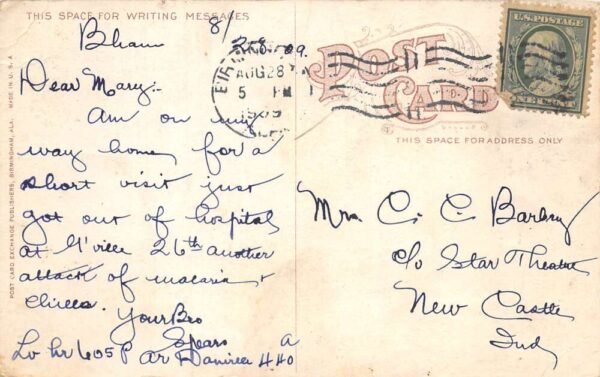 THIS SPACE FOR WRITING MESSAGES
Bham 8/28-09.
Dear Mary:-
Am on my
way home for a
short visit just
got out of hospital
at G'ville 26th another
attack of malaria &
chills. Your Bro
Lv hr 605 P Ar Danville 440 A
POST CARD EXCHANGE PUBLISHERS, BIRMINGHAM, ALA. MADE IN U. S. A.
AUG 28
5 PM
1909
ALA.
POST
CARD
U.S. POSTAGE
ONE CENT
THIS SPACE FOR ADDRESS ONLY
Mrs. C. C.
c/o Star Theatre
New Castle
Ind